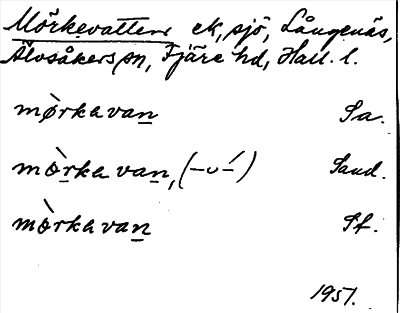 Mörkevatten ek, sjö, Långenäs,
Älvsåkers sn, Fjäre hd, Hall. l.
mø̀rkavan Sa.
mò̠rkavan, (–᎑–́) Sand.
mòrkavan Sf.
1951.